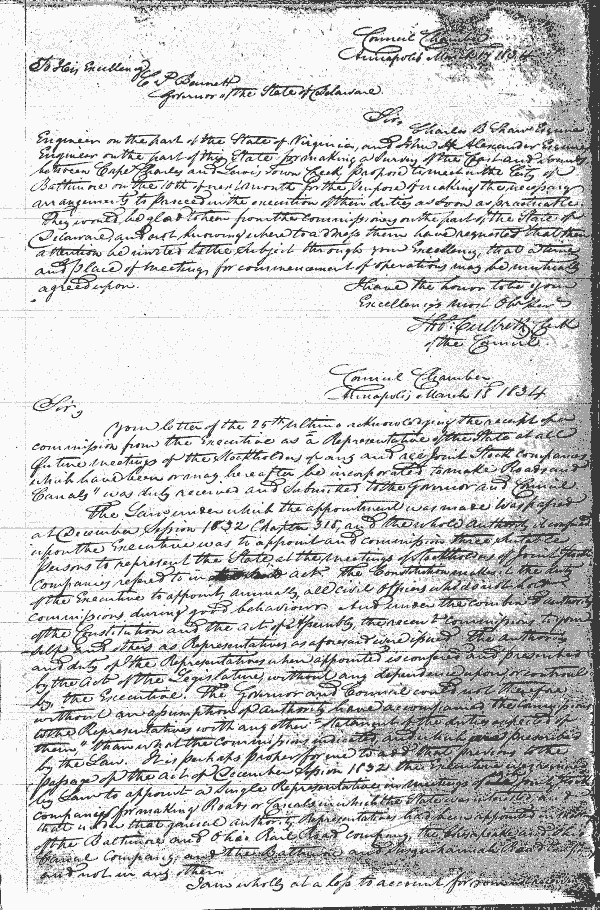 Council Chamber
Annapolis March 17 1834
To His Excellency
C. P. Bennett
Governor of the State of Delaware
Sir,
Charles B Shaw Esquire
Engineer on the part of the State of Virginia, and John H Alexander Esquire
Engineer on the part of this State for making a Survey of the East and
between Cape Charles and Lewis Town Creek, propose to meet in the City of
Baltimore on the 10th of next month for the purpose of making the necessary
arrangements to proceed in the execution of their duties as soon as practicable
They would be glad to hear from the commissioners on the part of the State of
Delaware, and not knowing where to address them have requested that their
attention be invited to the subject through your Excellency, that a time
and place of meeting for commencement of operations may be mutually
agreed upon.
I have the honor to be your
Excellency's most Ob. Serv.
Tho. Culbreth Clerk
of the Council
Council Chamber
Annapolis, March 18 1834
Sir,
Your letter of the 25th ultimo acknowledging the receipt of a
commission from the Executive as a Representative of the State at all
future meetings of the Stockholders of any and all Joint Stock Companies
which have been or may hereafter be incorporated to make Roads and
Canals" was duly received and submitted to the Governor and Council
The Law under which the appointment was made was passed
at December Session 1832 Chapter 318, and the whole authority it confers
upon the Executive was to appoint and commission three suitable
Persons to represent the State at the meetings of Stockholders of Joint Stock
Companies refered to in act. The Constitution makes it the duty
of the Executive to appoint, annually, all civil Officers who do not hold
commissions during good behaviour. And under the combined authority
of the Constitution and the Act of Assembly, the recent commissions to your-
self and others as Representatives as aforesaid were issued. The authority
and duty of the Representatives when appointed is conferred and prescribed
by the Act of the Legislature, without any dependence upon or control
by, the Executive. The Governor and Council could not therefore
without an assumption of authority have accompanied the commissions
to the Representatives with any other "Statement of the duties expected of
them" than what the Commissions indicated and which are prescribed
by the Law. It is perhaps proper for me to add that previous to the
Passage of the Act of December Session 1832 the Executive was required
by Law to appoint a single Representative in meetings of Joint Stock
companies for making Roads or Canals in which the State was interested and
that under that general authority Representatives had been appointed in those
of the Baltimore and Ohio Rail Road company, the Chesapeake and Ohio
Canal Company, and the Baltimore and Susquehannah Road Comp.
and not in any others
I am wholly at a loss to account for